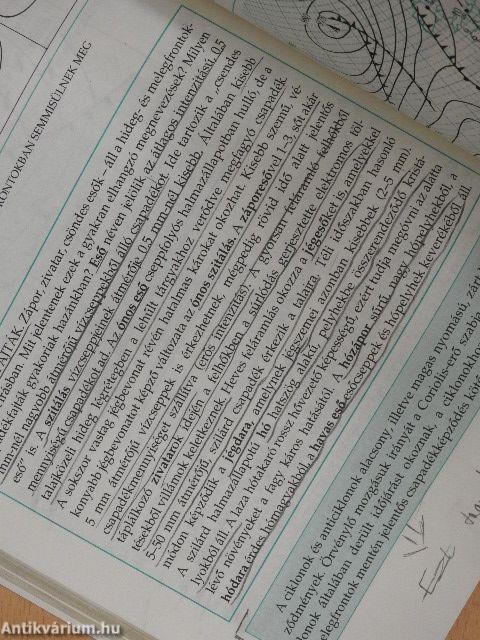 RONTOKBAN SEMMISÜLNEK MEG
AJTÁK. Zápor, zivatar, csöndes esők – áll a hideg- és melegfrontok-
rásban. Mit jelentenek ezek a gyakran elhangzó megnevezések? Milyen
dékfajták gyakoriak hazánkban? Eső néven jelölik az átlagos intenzitású, 0,5
mm-nél nagyobb átmérőjű vízcseppekből álló csapadékot. Ide tartozik a „csendes
eső" is. A szitálás vízcseppjeinek átmérője 0,5 mm-nél kisebb. Általában kisebb
mennyiségű csapadékot ad. Az ónos eső cseppfolyós halmazállapotban hulló, de a
talajközeli hideg légrétegben a lehűlt tárgyakhoz verődve megfagyó csapadék.
A sokszor vastag jégbevonat révén hatalmas károkat okozhat. Kisebb szemű, vé-
konyabb jégbevonatot képző változata az ónos szitálás. A záporesővel 1–3, sőt akár
5 mm átmérőjű vízcseppek is érkezhetnek, mégpedig rövid idő alatt jelentős
csapadékmennyiséget szállítva (erős intenzitás). A gyorsan feláramló felhőkből
táplálkozó zivatarok idején a felhőkben a súrlódás gerjesztette elektromos töl-
tésekből villámok keletkeznek. Heves feláramlás okozza a jégesőket is, amelyekkel
5–50 mm átmérőjű, szilárd csapadék érkezik a talajra. Téli időszakban hasonló
módon képződik a jégdara, amelynek jégszemei azonban kisebbek (2–5 mm).
A szilárd halmazállapotú hó hatszög alakú, pelyhekbe összerendeződő kristá-
lyokból áll. A laza hótakaró rossz hővezető képességű, ezért tudja megóvni az alatta
levő növényeket a fagy káros hatásaitól. A hózápor sűrű, nagy hópelyhekből, a
hódara érdes hómagvakból, a havas eső esőcseppek és hópelyhek keverékéből áll.
A ciklonok és anticiklonok alacsony, illetve magas nyomású, zárt
ződmények. Örvénylő mozgásuk irányát a Coriolis-erő szabja
lonok általában derült időjárást okoznak, a ciklonokhoz
elegfrontok mentén jelentős csapadékképződés köt
Antikvárium.hu